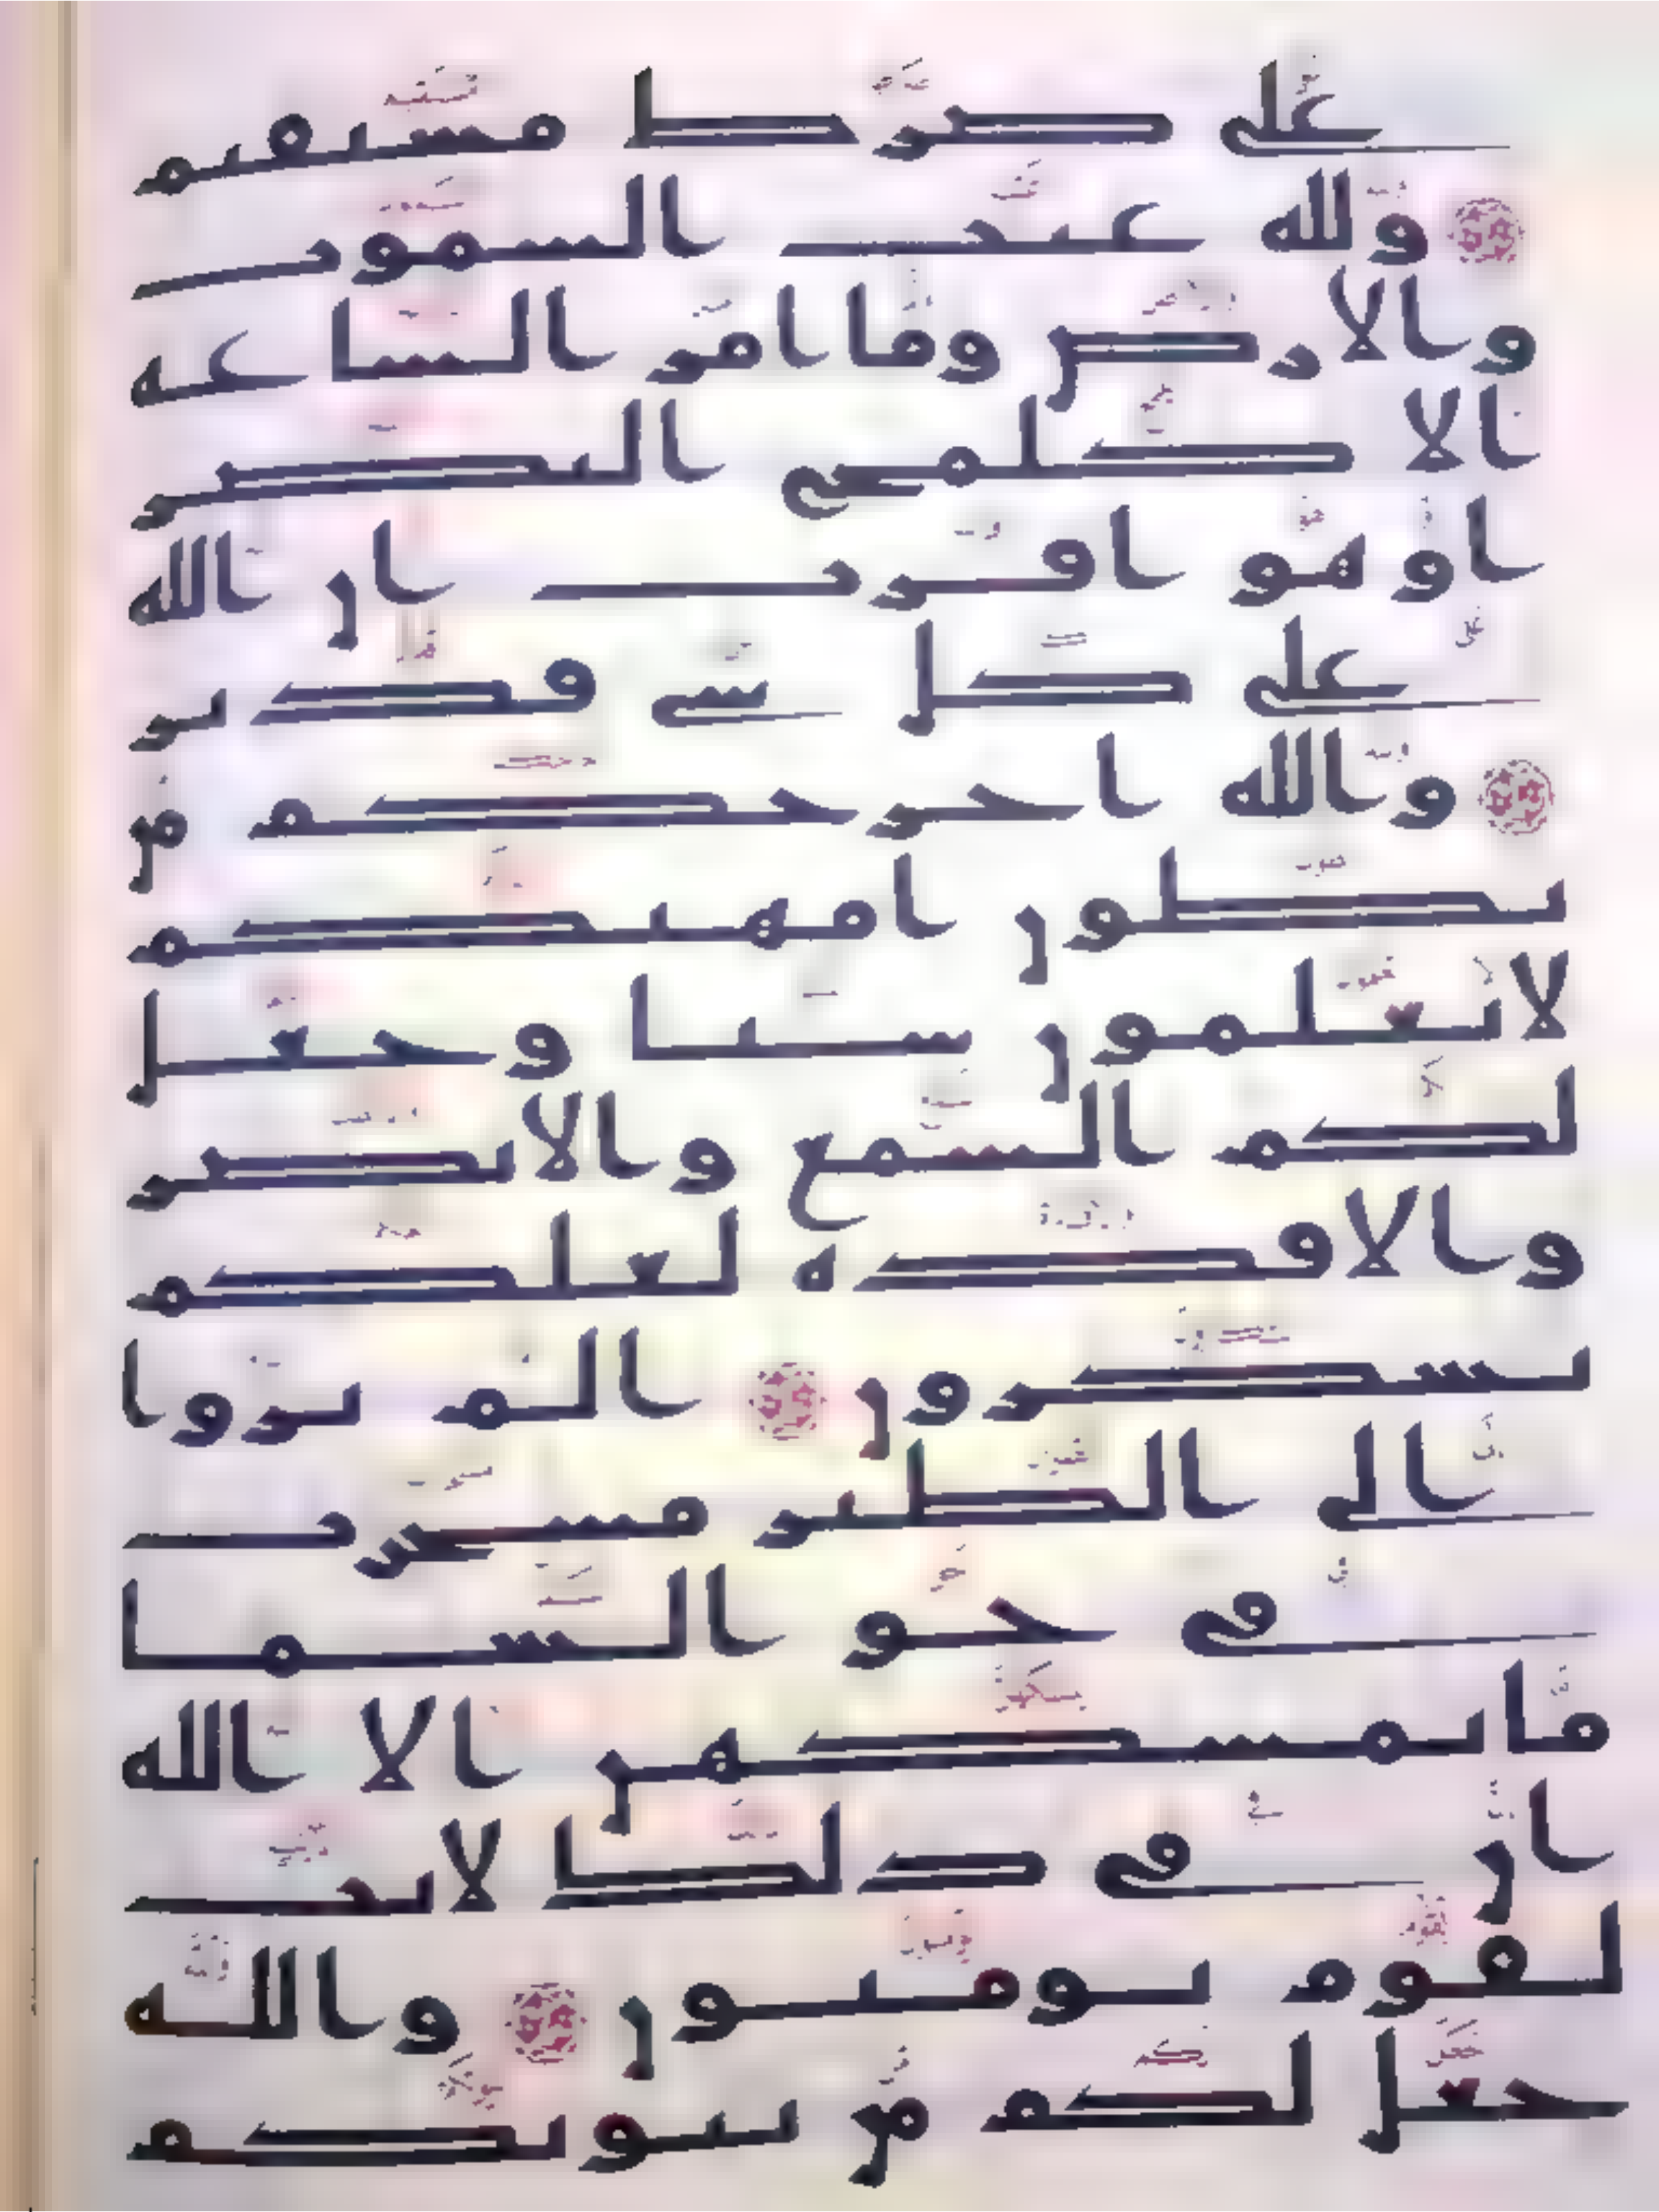 على صرط مستقيم
ولله غيب السموت
والارض وما امر الساعة
الا كلمح البصر
او هو اقرب ان الله
على كل شى قدير
والله اخرجكم من
بطون امهتكم
لا تعلمون شيا وجعل
لكم السمع والابصر
والافدة لعلكم
تشكرون الم يروا
الى الطير مسخرت
فى جو السما
ما يمسكهن الا الله
ان فى ذلك لايت
لقوم يومنون والله
جعل لكم من بيوتكم